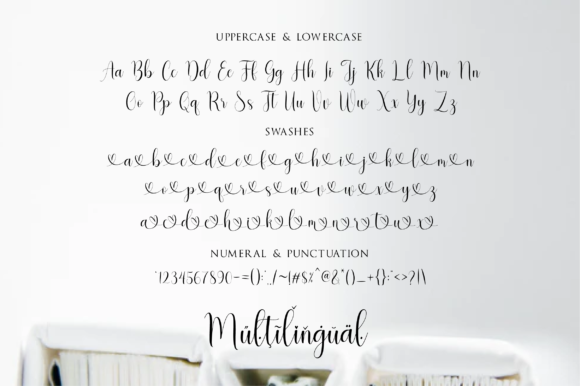 UPPERCASE & LOWERCASE
Aa Bb Cc Dd Ee Ff Gg Hh Ii Jj Kk Ll Mm Nn
Oo Pp Qq Rr Ss Tt Uu Vv Ww Xx Yy Zz
SWASHES
a b c d e f g h i j k l m n
o p q r s u v w x y z
a d h i k l m n r t u x
NUMERAL & PUNCTUATION
Mủlţïlïňġŭäl